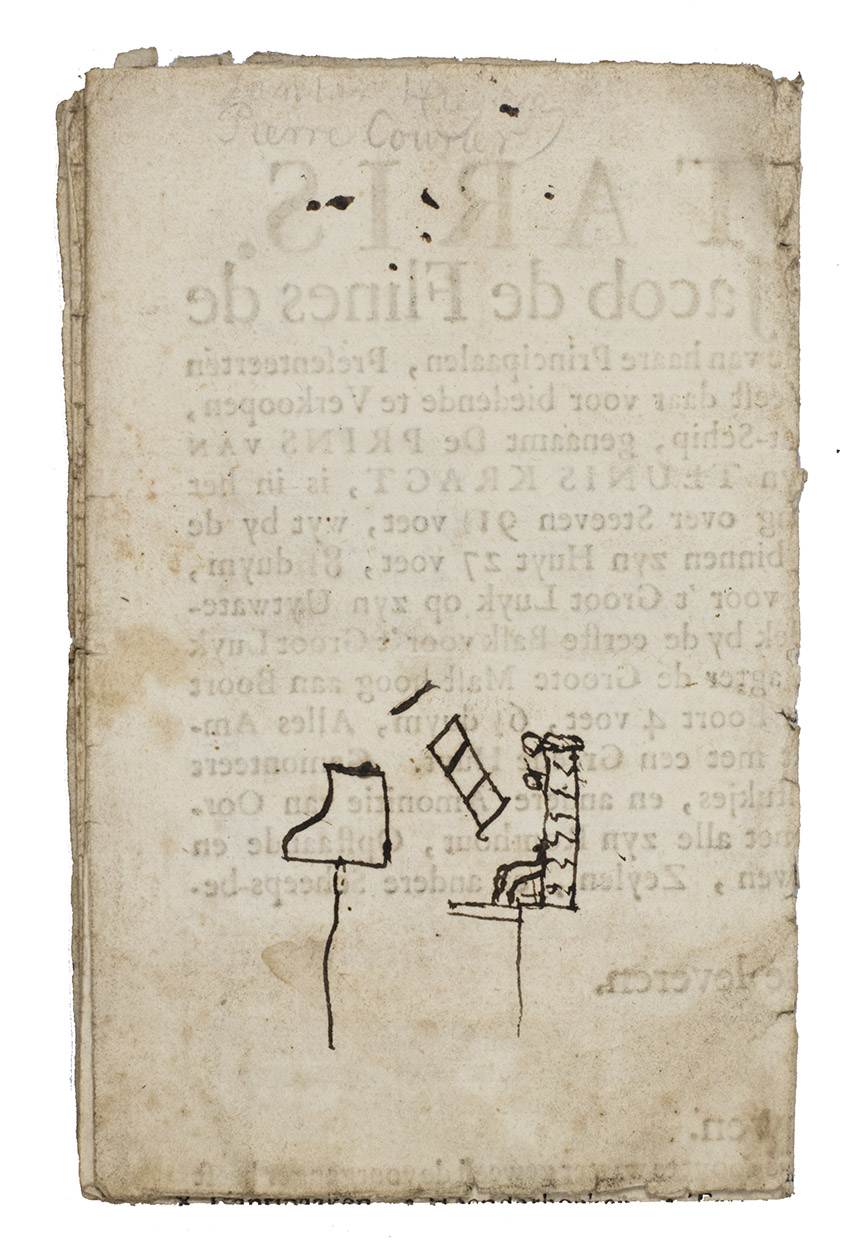 Pierre Courier
TARIS.
Jacob de Flines de
van haare Principaalen, Preſenteerten
eeft daar voor biedende te Verkoopen,
t-Schip, genaamt De PRINS VAN
TEUNIS KRAGT, is in het
ng over Steeven 91½ voet, wyt by de
binnen zyn Huyt 27 voet, 8½ duym,
voor 't Groot Luyk op zyn Uytwate-
ek by de eerſte Balk voor 't Groot Luyk
agter de Groote Maſt hoog aan Boort
Boort 4 voet, 6½ duym, Alles Am-
t met een Gemonteert
ſtukjes, en andere Amonitie van Oor-
met alle zyn Rondhout, Opſtaande en
ven, Zeylen andere Scheeps-be-
e leveren.
ven.